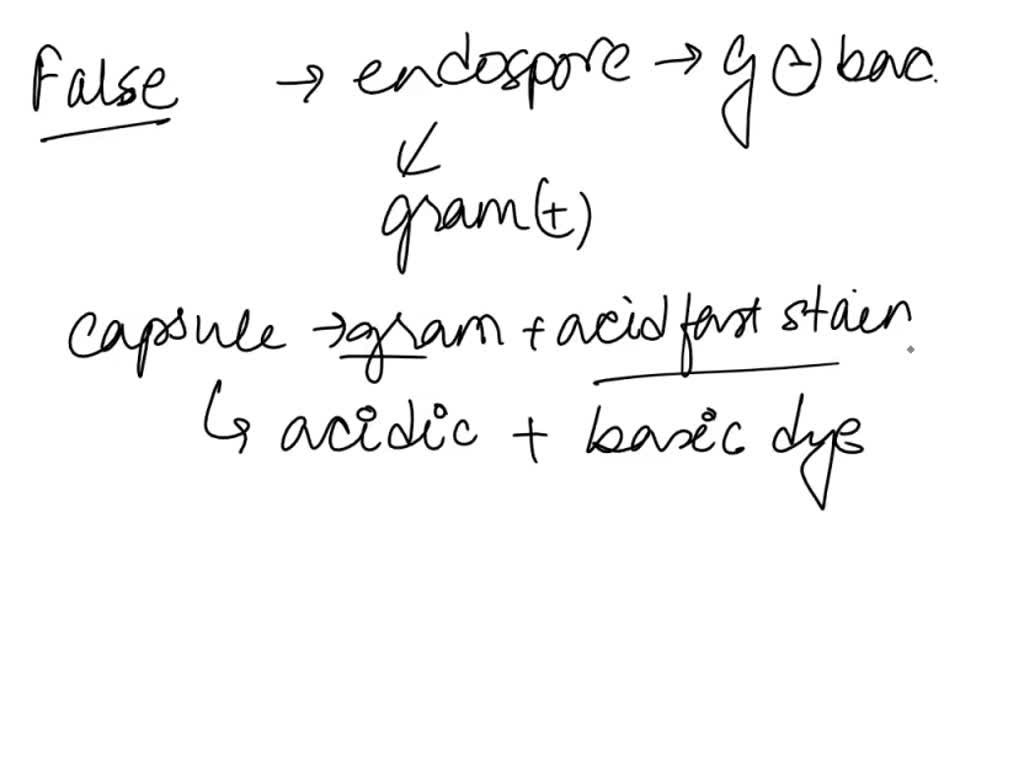 False → endospore → g ⊖ bac.
↙
gram (+)
capsule → gram + acid fast stain
↳ acidic + basic dye